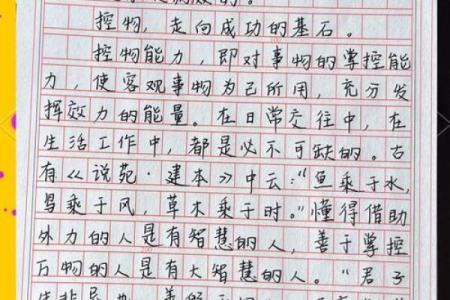 控物，走向成功的基石。
控物能力，即对事物的掌控能
力，使客观事物为己所用，充分发
挥效力的能量。在日常交往中，在
生活工作中，都是必不可缺的。古
有《说苑·建本》中云："鱼乘于水，
鸟乘于风，草木乘于时。"懂得借助
外力的人是有智慧的人，善于掌控
万物的人是有大智慧的人。"君子